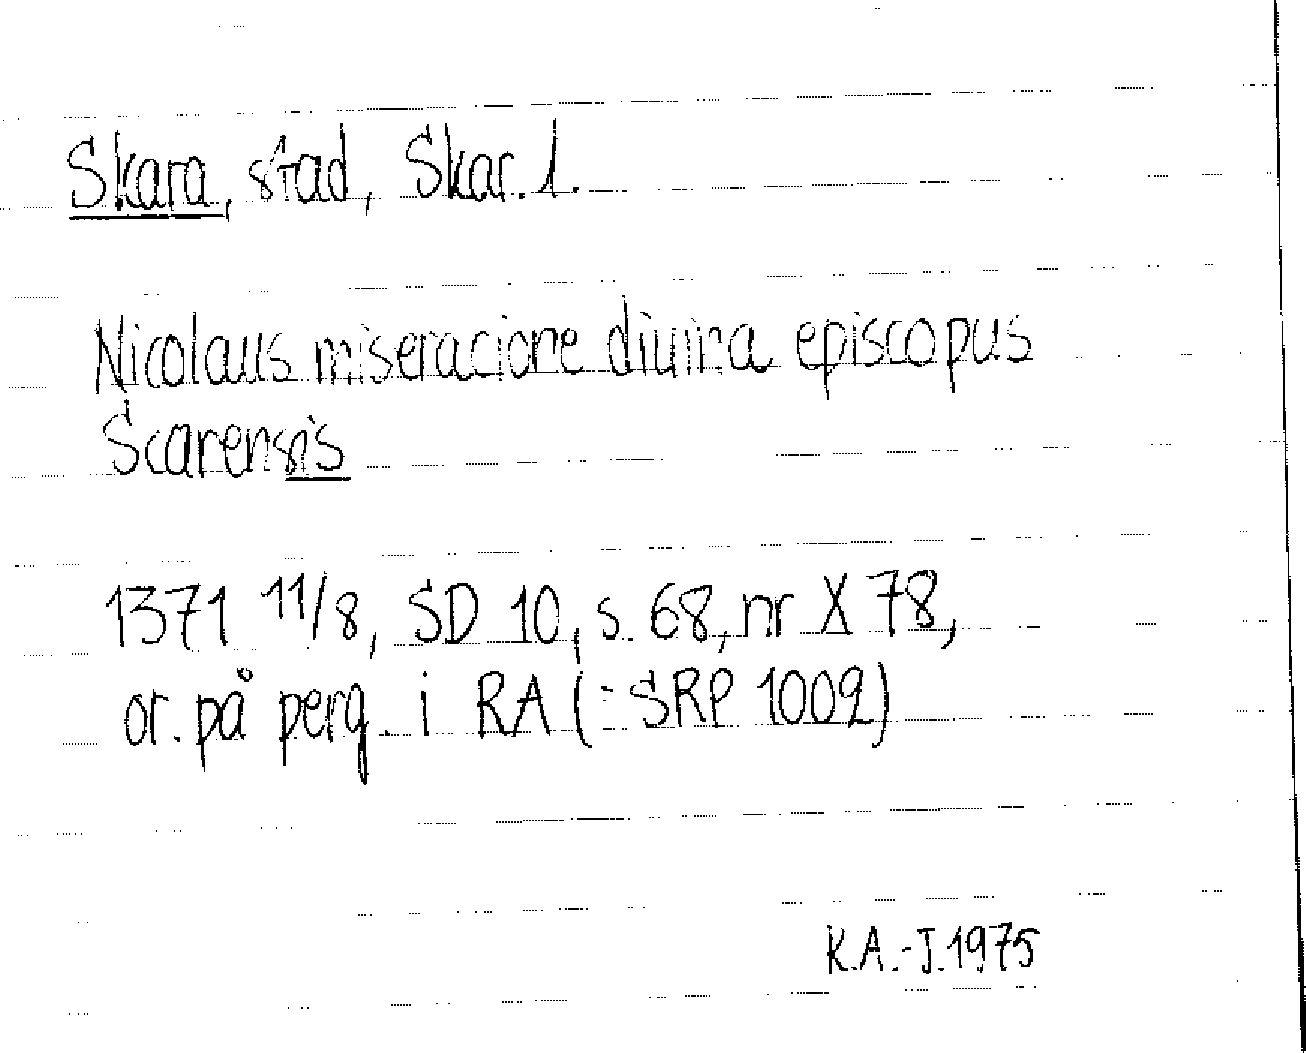 Skara, stad, Skar. 1.
Nicolaus miseracione diuina episcopus
Scarensis
1371 11/8, SD 10, s. 68, nr X 78,
or. på perg. i RA (:SRP 1002)
K.A.-J. 1975